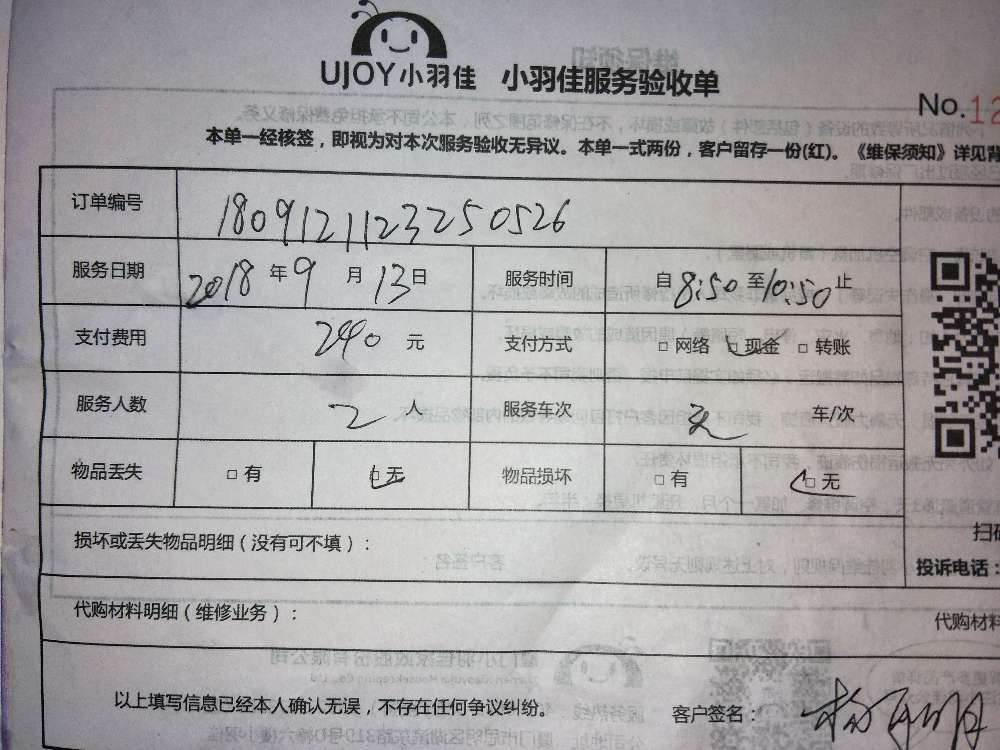 UJOY小羽佳 小羽佳服务验收单
No.12
本单一经核签，即视为对本次服务验收无异议。本单一式两份，客户留存一份(红)。《维保须知》详见背
订单编号 180912112325052​6
服务日期 2018年9月13日 服务时间 自8:50至10:50止
支付费用 240元 支付方式 □网络 □现金 □转账
服务人数 2人 服务车次 车/次
物品丢失 □有 □无 物品损坏 □有 □无
损坏或丢失物品明细（没有可不填）：
扫码
投诉电话：
代购材料明细（维修业务）：
代购材料
以上填写信息已经本人确认无误，不存在任何争议纠纷。 客户签名：